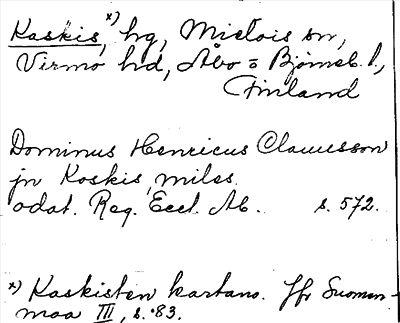 Kaskis,*) hg, Mietois sn,
Virmo hd, Åbo o Björneb. l,
Finland
Dominus Henricus Clauesson
jn Koskis, miles.
odat. Reg. Eccl. Ab. s. 572.
*) Kaskisten kartano. Jfr Suomen-
maa III, s. 83.